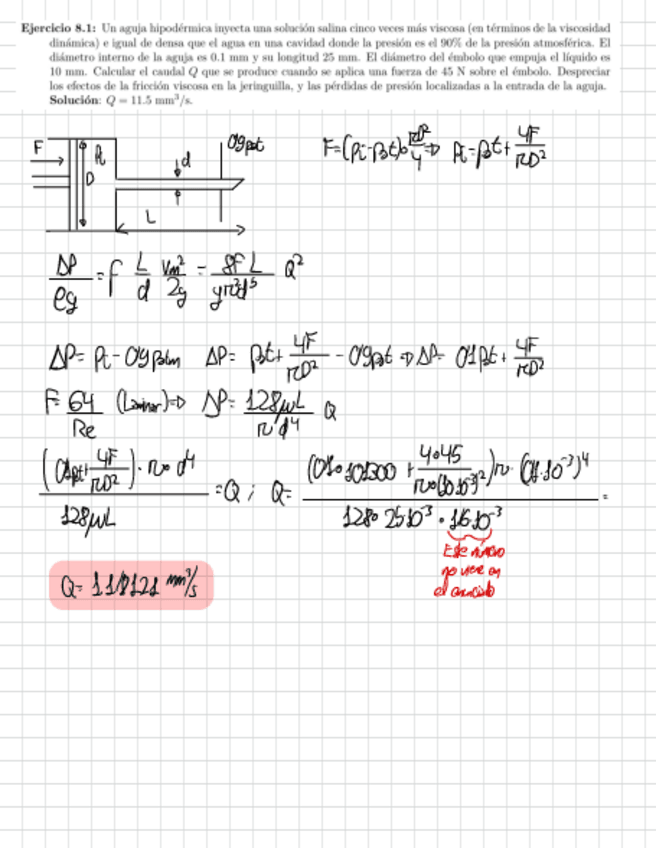 Ejercicio 8.1: Un aguja hipodérmica inyecta una solución salina cinco veces más viscosa (en términos de la viscosidad
dinámica) e igual de densa que el agua en una cavidad donde la presión es el 90% de la presión atmosférica. El
diámetro interno de la aguja es 0.1 mm y su longitud 25 mm. El diámetro del émbolo que empuja el líquido es
10 mm. Calcular el caudal Q que se produce cuando se aplica una fuerza de 45 N sobre el émbolo. Despreciar
los efectos de la fricción viscosa en la jeringuilla, y las pérdidas de presión localizadas a la entrada de la aguja.
Solución: Q = 11.5 mm³/s.
F Pi D d L 0'9 pat
F=(Pi-Pat)·πD²/4 ⇒ Pi=Pat+4F/πD²
ΔP/ρg = f L/d Vm²/2g = 8fL/gπ²d⁵ Q²
ΔP= Pi-0'9 Patm ΔP= Pat+4F/πD² - 0'9Pat ⇒ ΔP= 0'1 Pat + 4F/πD²
F= 64/Re (Laminar)⇒ ΔP= 128μL/πd⁴ Q
(0'1Pat+4F/πD²)·π·d⁴/128μL =Q ; Q= (0'1·101300 + 4·45/π·(10·10⁻³)²)π·(0'1·10⁻³)⁴/128·25·10⁻³· =
Este número
no viene en
el enunciado
mm³/s